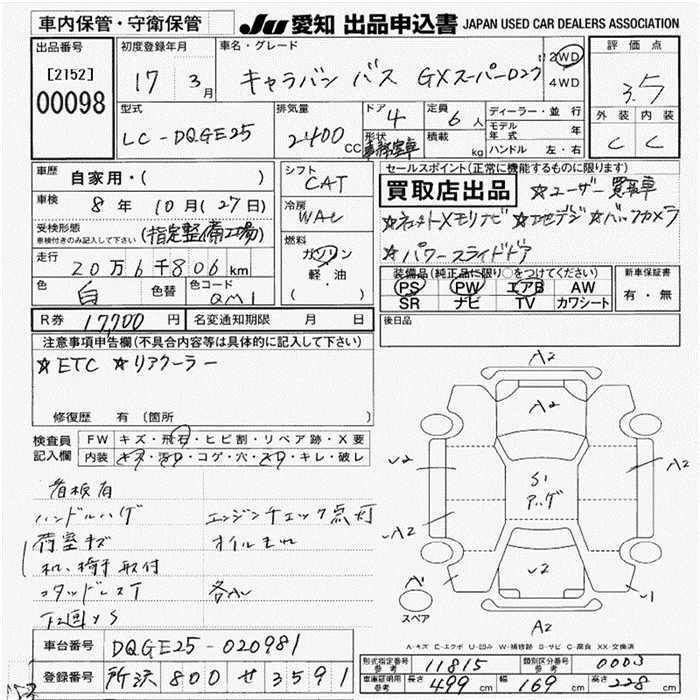 車内保管・守衛保管
JU 愛知 出品申込書 JAPAN USED CAR DEALERS ASSOCIATION
出品番号 [2152] 00098
初度登録年月 17年 3月
車名・グレード キャラバン バス GXスーパーロング
2WD 4WD
評価点 3.5
外装 内装
C C
型式 LC-DQGE25
排気量 2400 CC
ドア 4
形状 事務室車
定員 6人
積載 kg
ディーラー・並行
モデル年式 年
ハンドル 左・右
車歴 自家用・( )
車検 8年 10月(27日)
受検形態 (指定整備工場)
車検付きのみ記入して下さい
走行 20万6千806km
色 白 色替 色コード QM1
シフト CAT
冷房 WAC
燃料 ガソリン
軽・油
( )
セールスポイント(正常に機能するものに限ります)
買取店出品 ☆ユーザー買取車
☆ネットXモリナビ ☆フルセグ ☆バックカメラ
☆パワースライドドア
装備品(純正品に限り○をつけてください)
PS PW エアB AW
SR ナビ TV カワシート
新車保証書
有・無
R券 17,700円 名変通知期限 月 日
後日品
注意事項申告欄(不具合内容等は具体的に記入して下さい)
☆ETC ☆リアクーラー
修復歴 有(箇所
検査員記入欄
FW キズ・飛石・ヒビ割・リペア跡・X要
内装 キズ・汚レ・コゲ・穴・スレ・キレ・破レ
看板有
ハンドルハゲ エンジンチェック点灯
荷室キズ オイルモレ
机、椅子取付
コタッドレスT 各ハレ
下回XS
A2
A2
√2
S1
アハゲ
A2
√A2
√2
√1
A
スペア
A2
A-キズ E-エクボ U-凹み W-補修跡 S-サビ C-腐食 XX-交換済
車台番号 DQGE25-020981
登録番号 所沢 800 せ 3591
形式指定番号 参考 11815
類別区分番号 参考 0003
車庫証明用 参考 長さ 499cm 幅 169cm 高さ 228cm